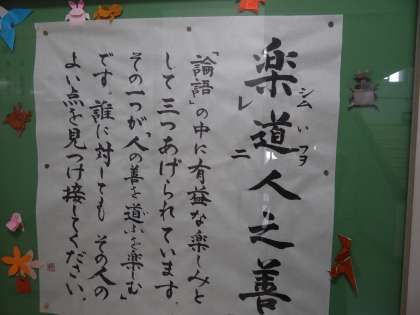 楽シム道いフヲ人之善
レ二
「論語」の中に有益な楽しみと
して三つあげられています。
その一つが「人の善を道ふを楽しむ」
です。誰に対しても その人の
よい点を見つけ接してください。